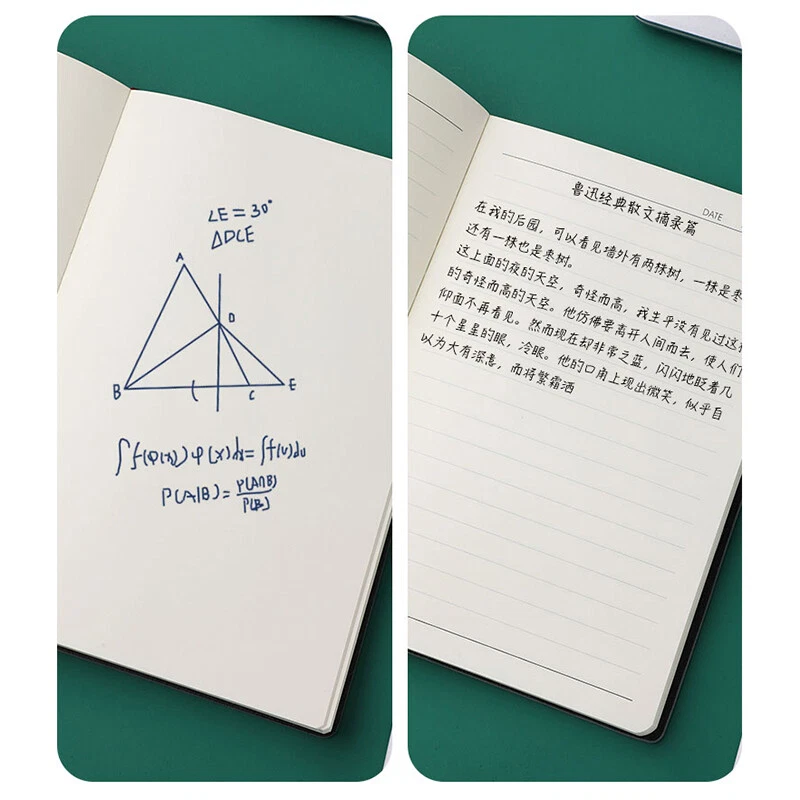 ∠E = 30°
△DCE
A
D
B
C
E
∫f(φ(x)) φ(x)dx = ∫f(u)du
P(A|B) = P(A∩B)/P(B)
DATE
鲁迅经典散文摘录篇
在我的后园，可以看见墙外有两株树，一株是枣
还有一株也是枣树。
这上面的夜的天空，奇怪而高，我生平没有见过这样
的奇怪而高的天空。他仿佛要离开人间而去，使人们
仰面不再看见。然而现在却非常之蓝，闪闪地䀹着几
十个星星的眼，冷眼。他的口角上现出微笑，似乎自
以为大有深意，而将繁霜洒